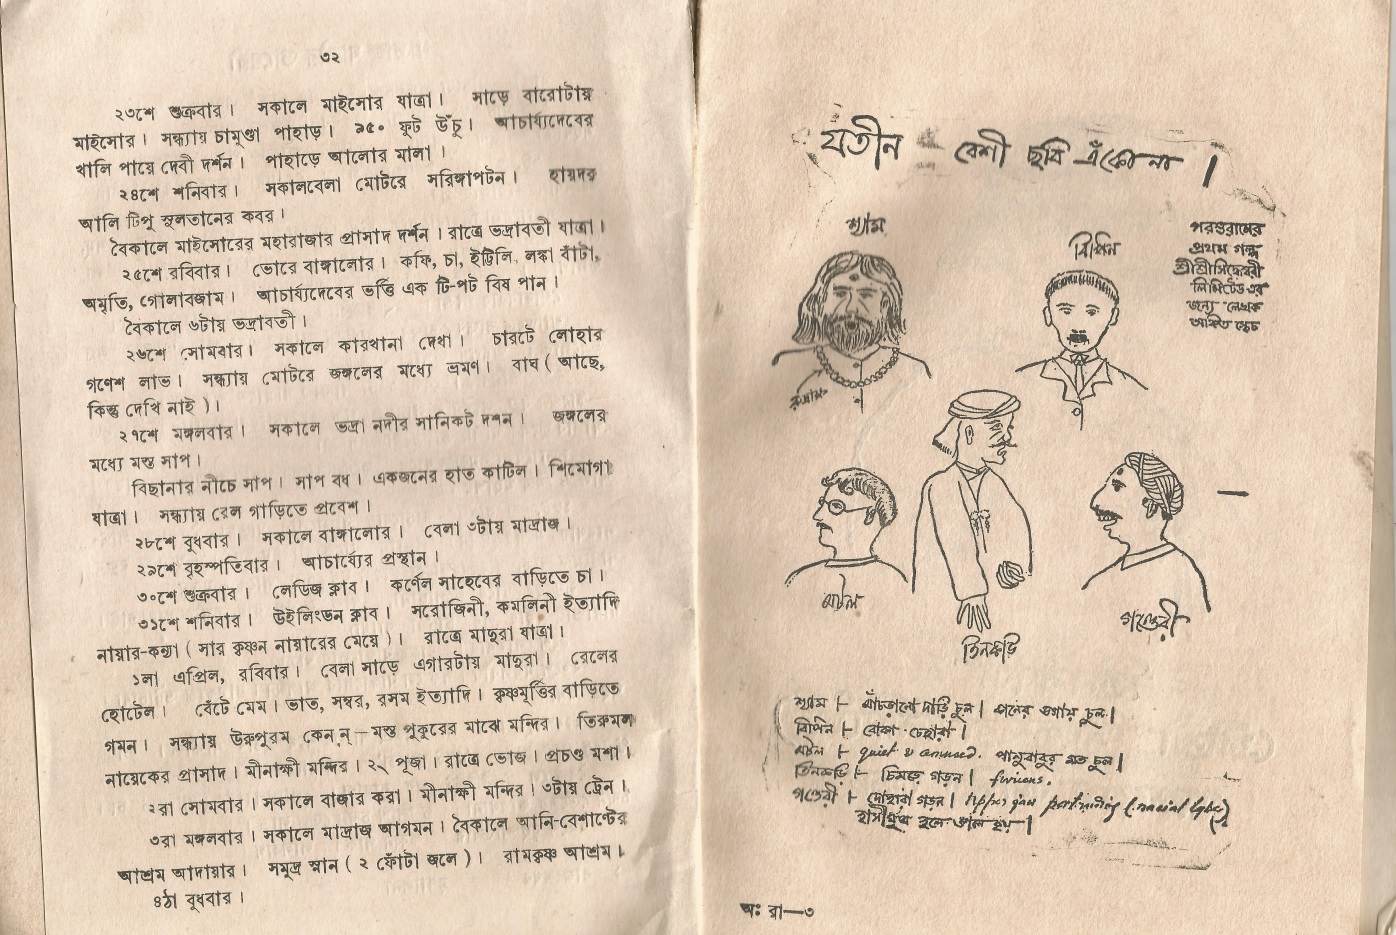 ৩২
২৩শে শুক্রবার। সকালে মাইসোর যাত্রা। সাড়ে বারোটায়
মাইসোর। সন্ধ্যায় চামুণ্ডা পাহাড়। ৯৫০ ফুট উঁচু। আচার্য্যদেবের
খালি পায়ে দেবী দর্শন। পাহাড়ে আলোর মালা।
২৪শে শনিবার। সকালবেলা মোটরে সরিঙ্গাপটন। হায়দর
আলি টিপু সুলতানের কবর।
বৈকালে মাইসোরের মহারাজার প্রাসাদ দর্শন। রাত্রে ভদ্রাবতী যাত্রা।
২৫শে রবিবার। ভোরে বাঙ্গালোর। কফি, চা, ইট্টিলি, লঙ্কা বাঁটা,
অমৃতি, গোলাবজাম। আচার্য্যদেবের ভর্ত্তি এক টি-পট বিষ পান।
বৈকালে ৬টায় ভদ্রাবতী।
২৬শে সোমবার। সকালে কারখানা দেখা। চারটে লোহার
গণেশ লাভ। সন্ধ্যায় মোটরে জঙ্গলের মধ্যে ভ্রমণ। বাঘ ( আছে,
কিন্তু দেখি নাই )।
২৭শে মঙ্গলবার। সকালে ভদ্রা নদীর সানিকট দর্শন। জঙ্গলের
মধ্যে মস্ত সাপ।
বিছানার নীচে সাপ। সাপ বধ। একজনের হাত কাটিল। শিমোগা
যাত্রা। সন্ধ্যায় রেল গাড়িতে প্রবেশ।
২৮শে বুধবার। সকালে বাঙ্গালোর। বেলা ৩টায় মাদ্রাজ।
২৯শে বৃহস্পতিবার। আচার্য্যের প্রস্থান।
৩০শে শুক্রবার। লেডিজ ক্লাব। কর্ণেল সাহেবের বাড়িতে চা।
৩১শে শনিবার। উইলিংডন ক্লাব। সরোজিনী, কমলিনী ইত্যাদি
নায়ার-কন্যা ( সার কৃষ্ণন নায়ারের মেয়ে )। রাত্রে মাদুরা যাত্রা।
১লা এপ্রিল, রবিবার। বেলা সাড়ে এগারটায় মাদুরা। রেলের
হোটেল। বেঁটে মেম। ভাত, সম্বর, রসম ইত্যাদি। কৃষ্ণমূর্ত্তির বাড়িতে
গমন। সন্ধ্যায় উরুপুরম কেন্‌ন্—মস্ত পুকুরের মাঝে মন্দির। তিরুমল
নায়েকের প্রাসাদ। মীনাক্ষী মন্দির। ২৲ পূজা। রাত্রে ভোজ। প্রচণ্ড মশা।
২রা সোমবার। সকালে বাজার করা। মীনাক্ষী মন্দির। ৩টায় ট্রেন।
৩রা মঙ্গলবার। সকালে মাদ্রাজ আগমন। বৈকালে আনি-বেশান্টের
আশ্রম আদায়ার। সমুদ্র স্নান ( ২ ফোঁটা জলে )। রামকৃষ্ণ আশ্রম।
৪ঠা বুধবার।
যতীন বেশী ছবি এঁকো না।
শ্যাম
বিপিন
পরশুরামের
প্রথম গল্প
শ্রীশ্রীসিদ্ধেশ্বরী
লিমিটেড এর
জন্য লেখক
অঙ্কিত স্কেচ
রুদ্রাক্ষ
অটল
তিনকড়ি
গণ্ডেরী
শ্যাম — ঝাঁকড়ানো দাড়ি চুল। কানের ডগায় চুল।
বিপিন — বোকা চেহারা।
অটল — quiet & amused. পানুবাবুর মত চুল।
তিনকড়ি — চিমড়ে গড়ন। furious.
গণ্ডেরী — দোহারা গড়ন। upper jaw protruding (racial type)
হাসিমুখ হলে ভাল হয়।
অঃ রা—৩